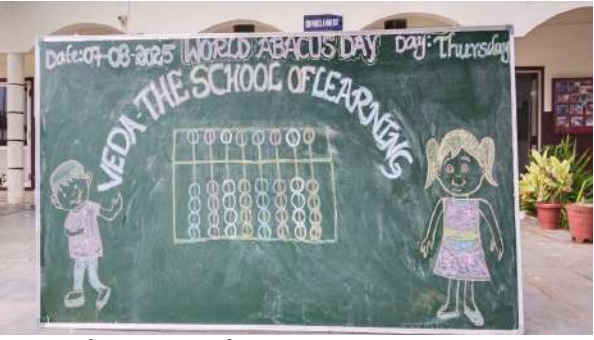 Date:07-08-2025 WORLD ABACUS DAY Day: Thursday
VEDA-THE SCHOOL OF LEARNING